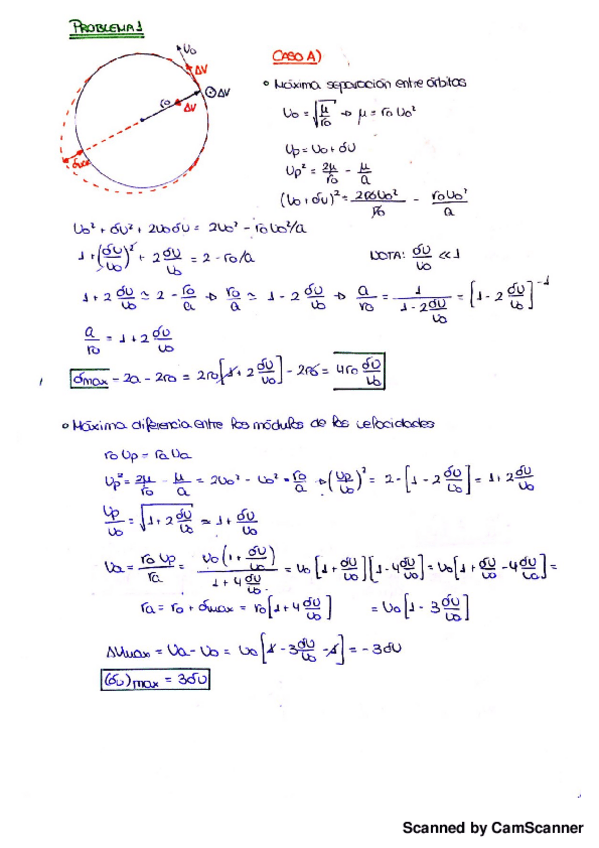 PROBLEMA 1
U₀
ΔV
⊙ ΔV
r₀
ΔV
δmax
CASO A)
• Máxima separación entre órbitas
U₀ = √(μ/r₀) → μ = r₀U₀²
Up = U₀ + δU
Up² = 2μ/r₀ - μ/a
(U₀ + δU)² = 2r₀U₀²/r₀ - r₀U₀²/a
U₀² + δU² + 2U₀δU = 2U₀² - r₀U₀²/a
1 + (δU/U₀)² + 2 δU/U₀ = 2 - r₀/a
NOTA: δU/U₀ << 1
1 + 2 δU/U₀ ≃ 2 - r₀/a → r₀/a ≃ 1 - 2 δU/U₀ → a/r₀ = 1/(1 - 2 δU/U₀) = [1 - 2 δU/U₀]⁻¹
a/r₀ = 1 + 2 δU/U₀
δmax = 2a - 2r₀ = 2r₀[1 + 2 δU/U₀] - 2r₀ = 4r₀ δU/U₀
• Máxima diferencia entre los módulos de las velocidades
r₀Up = raUa
Up² = 2μ/r₀ - μ/a = 2U₀² - U₀² · r₀/a → (Up/U₀)² = 2 - [1 - 2 δU/U₀] = 1 + 2 δU/U₀
Up/U₀ = √(1 + 2 δU/U₀) ≃ 1 + δU/U₀
Ua = r₀Up/ra = U₀(1 + δU/U₀)/(1 + 4 δU/U₀) = U₀[1 + δU/U₀][1 - 4 δU/U₀] = U₀[1 + δU/U₀ - 4 δU/U₀] =
ra = r₀ + δmax = r₀[1 + 4 δU/U₀] = U₀[1 - 3 δU/U₀]
ΔUmax = Ua - U₀ = U₀[1 - 3 δU/U₀ - 1] = -3δU
(δU)max = 3δU
Scanned by CamScanner